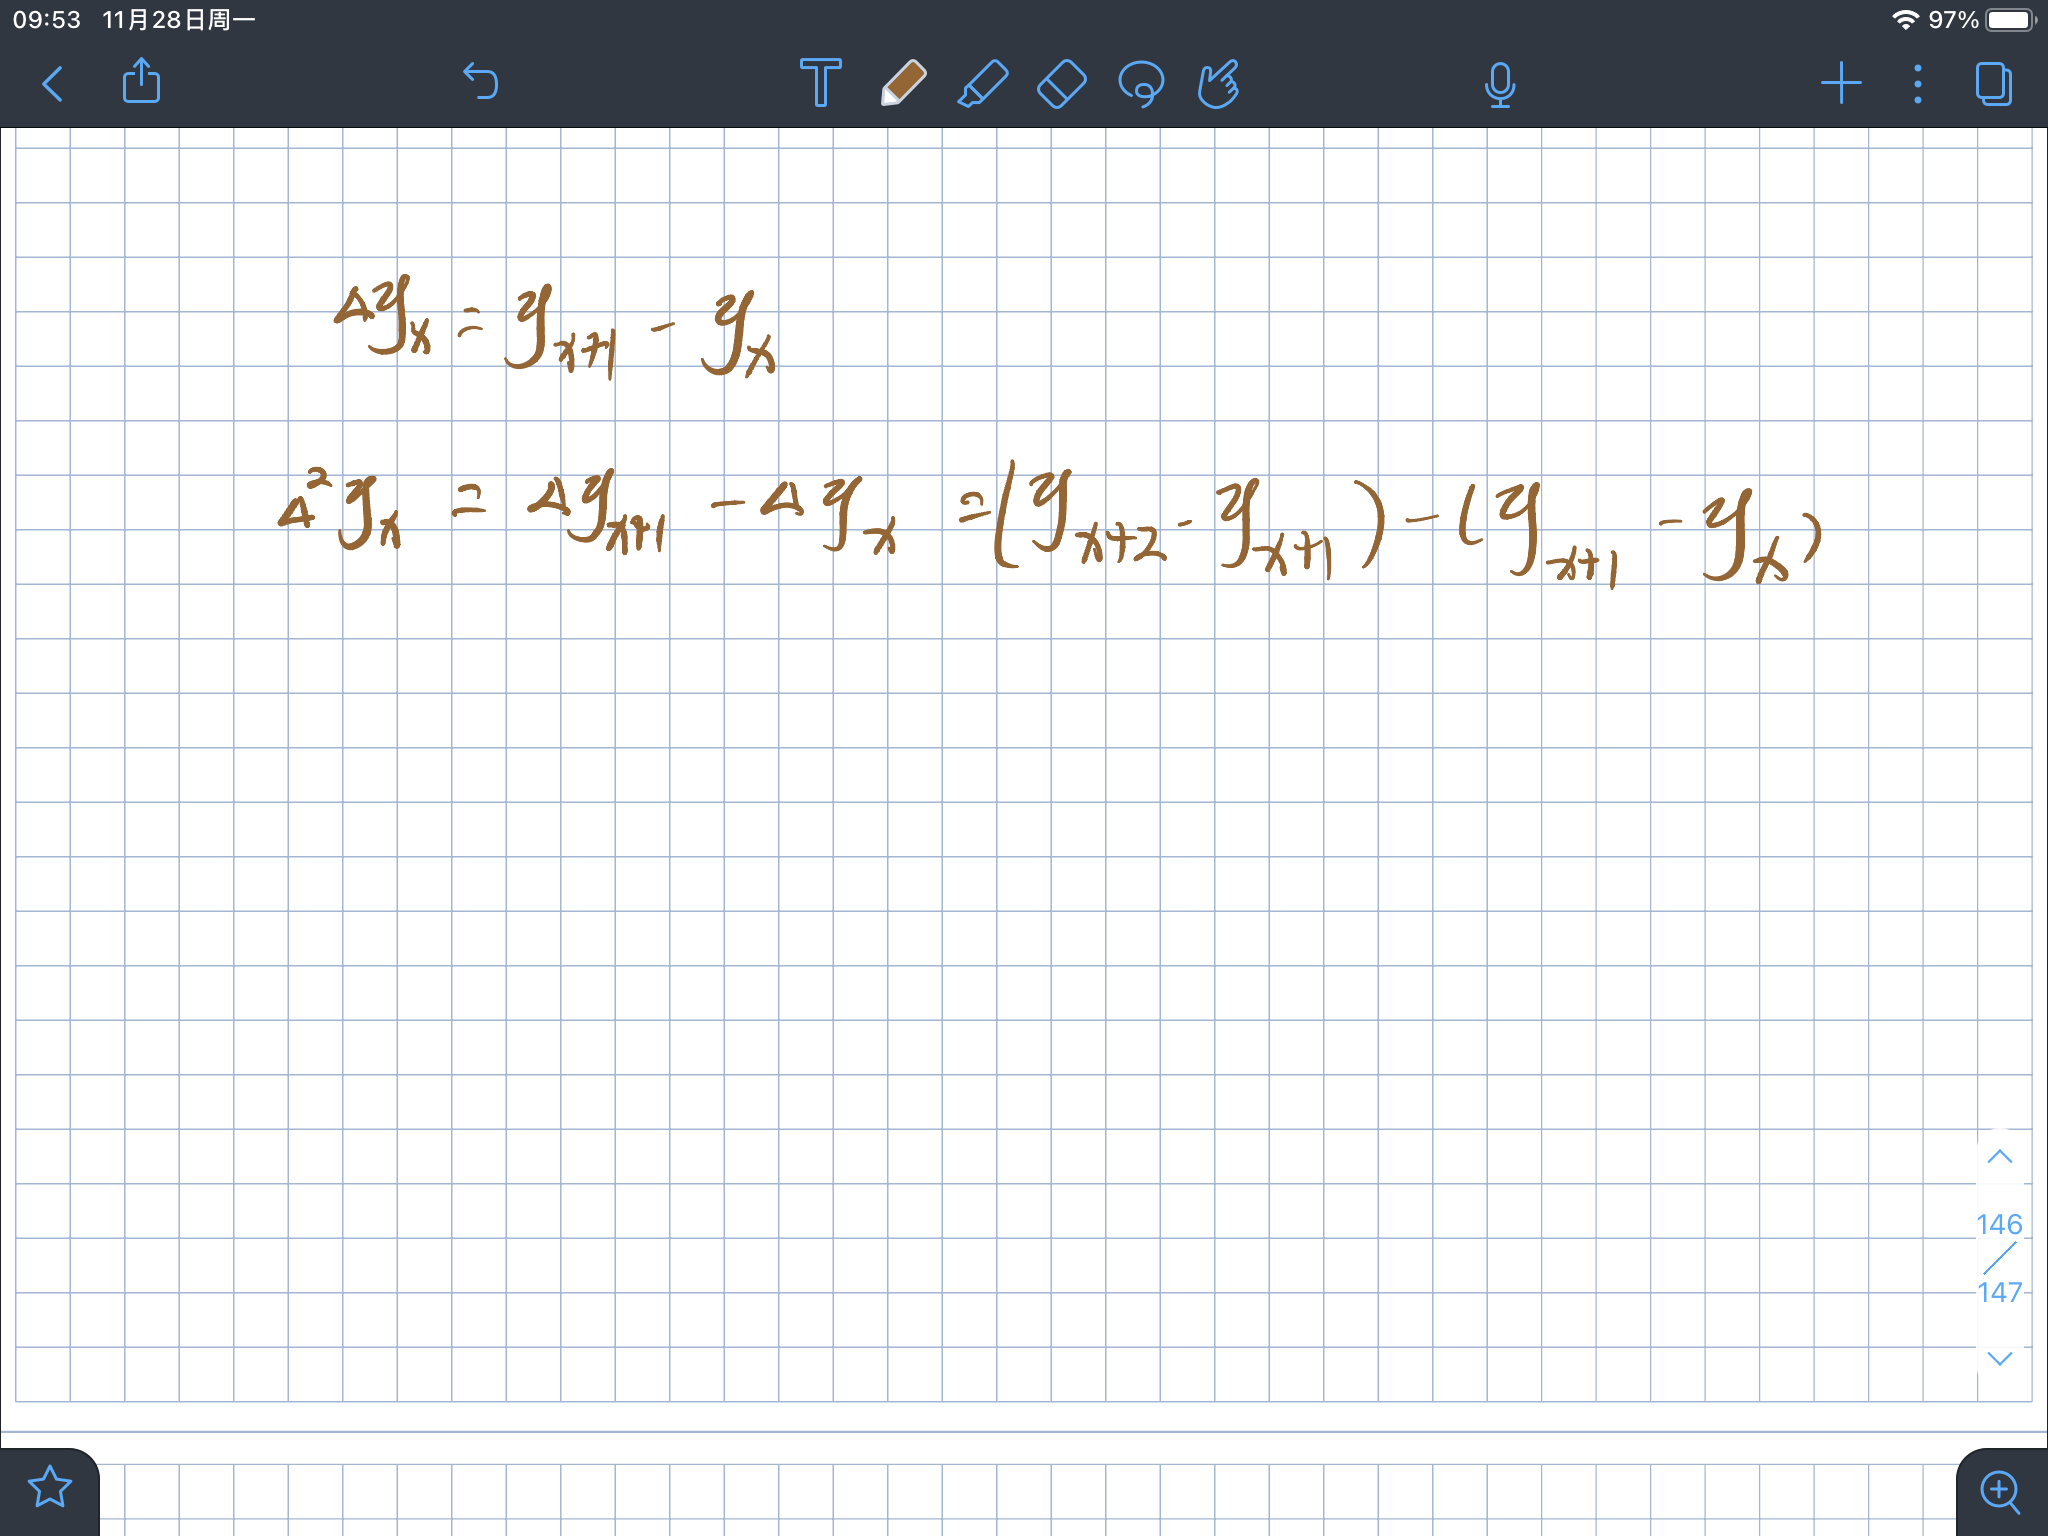 09:53 11月28日周一 97%
T
Δy_x = y_{x+1} - y_x
Δ²y_x = Δy_{x+1} - Δy_x = (y_{x+2} - y_{x+1}) - (y_{x+1} - y_x)
146
147